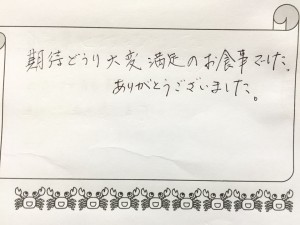 期待どうり大変満足のお食事でした。
ありがとうございました。